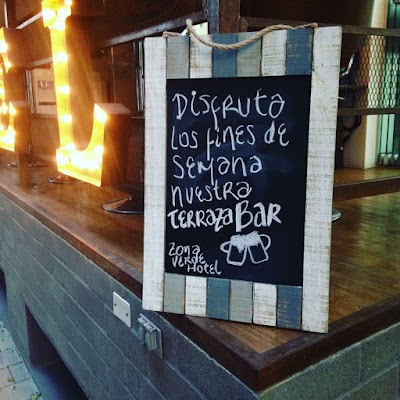 DISFRUTA
LOS FINES DE
SEMANA
NUESTRA
TERRAZA BAR
ZONA
VERDE
HOTEL
L